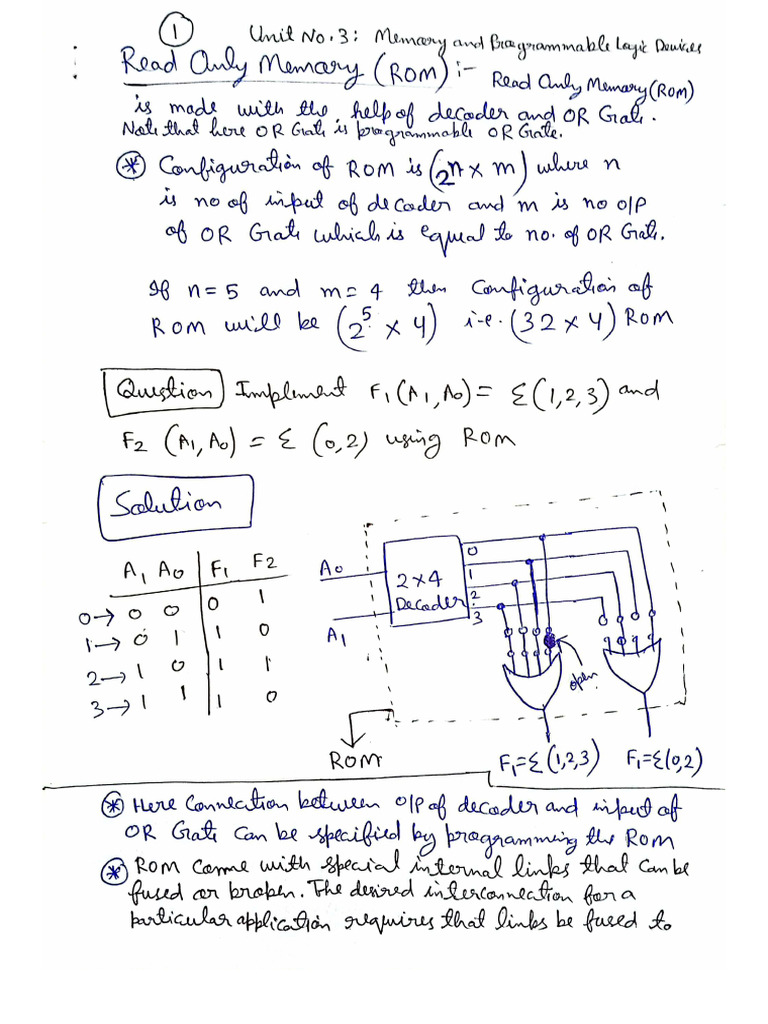 1 Unit No. 3: Memory and Programmable Logic Devices
Read Only Memory (ROM) :- Read Only Memory (ROM)
is made with the help of decoder and OR Gate.
Note that here OR Gate is programmable OR Gate.
* Configuration of ROM is (2^n x m) where n
is no of input of decoder and m is no O/P
of OR Gate which is equal to no. of OR Gate.
If n = 5 and m = 4 then Configuration of
ROM will be (2^5 x 4) i.e. (32 x 4) ROM
Question Implement F1 (A1, A0) = Σ (1,2,3) and
F2 (A1, A0) = Σ (0,2) using ROM
Solution
A1 A0 F1 F2
0→ 0 0 0 1
1→ 0 1 1 0
2→ 1 0 1 1
3→ 1 1 1 0
A0
A1
2x4
Decoder
0
1
2
3
open.
ROM
F1=Σ(1,2,3) F1=Σ(0,2)
* Here Connection between O/P of decoder and input of
OR Gate Can be specified by programming the ROM
* ROM Come with special internal links that can be
fused or broken. The desired interconnection for a
particular application requires that links be fused to